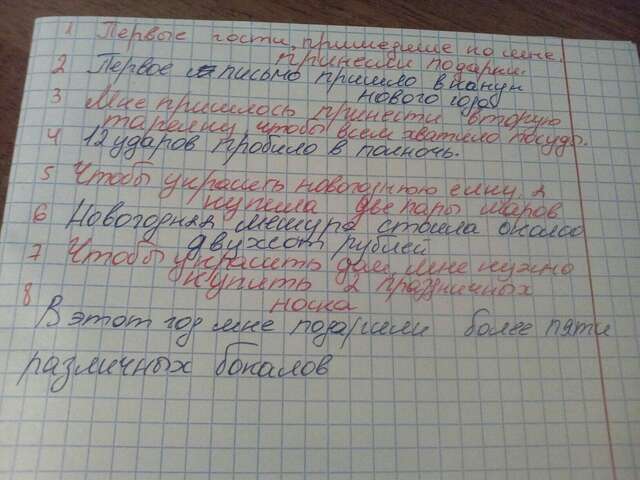 1 Первые гости, пришедшие ко мне,
принесли подарки.
2 Первое письмо пришло в канун
нового года
3 Мне пришлось принести вторую
тарелку чтобы всем хватило посуды.
4 12 ударов пробило в полночь.
5 Чтобы украсить новогоднюю елку, я
купила две пары шаров
6 Новогодняя мешура стоила около
двухсот рублей
7 Чтобы украсить дом мне нужно
купить 2 праздничных
носка
8 В этот год мне подарили более пяти
различных бокалов